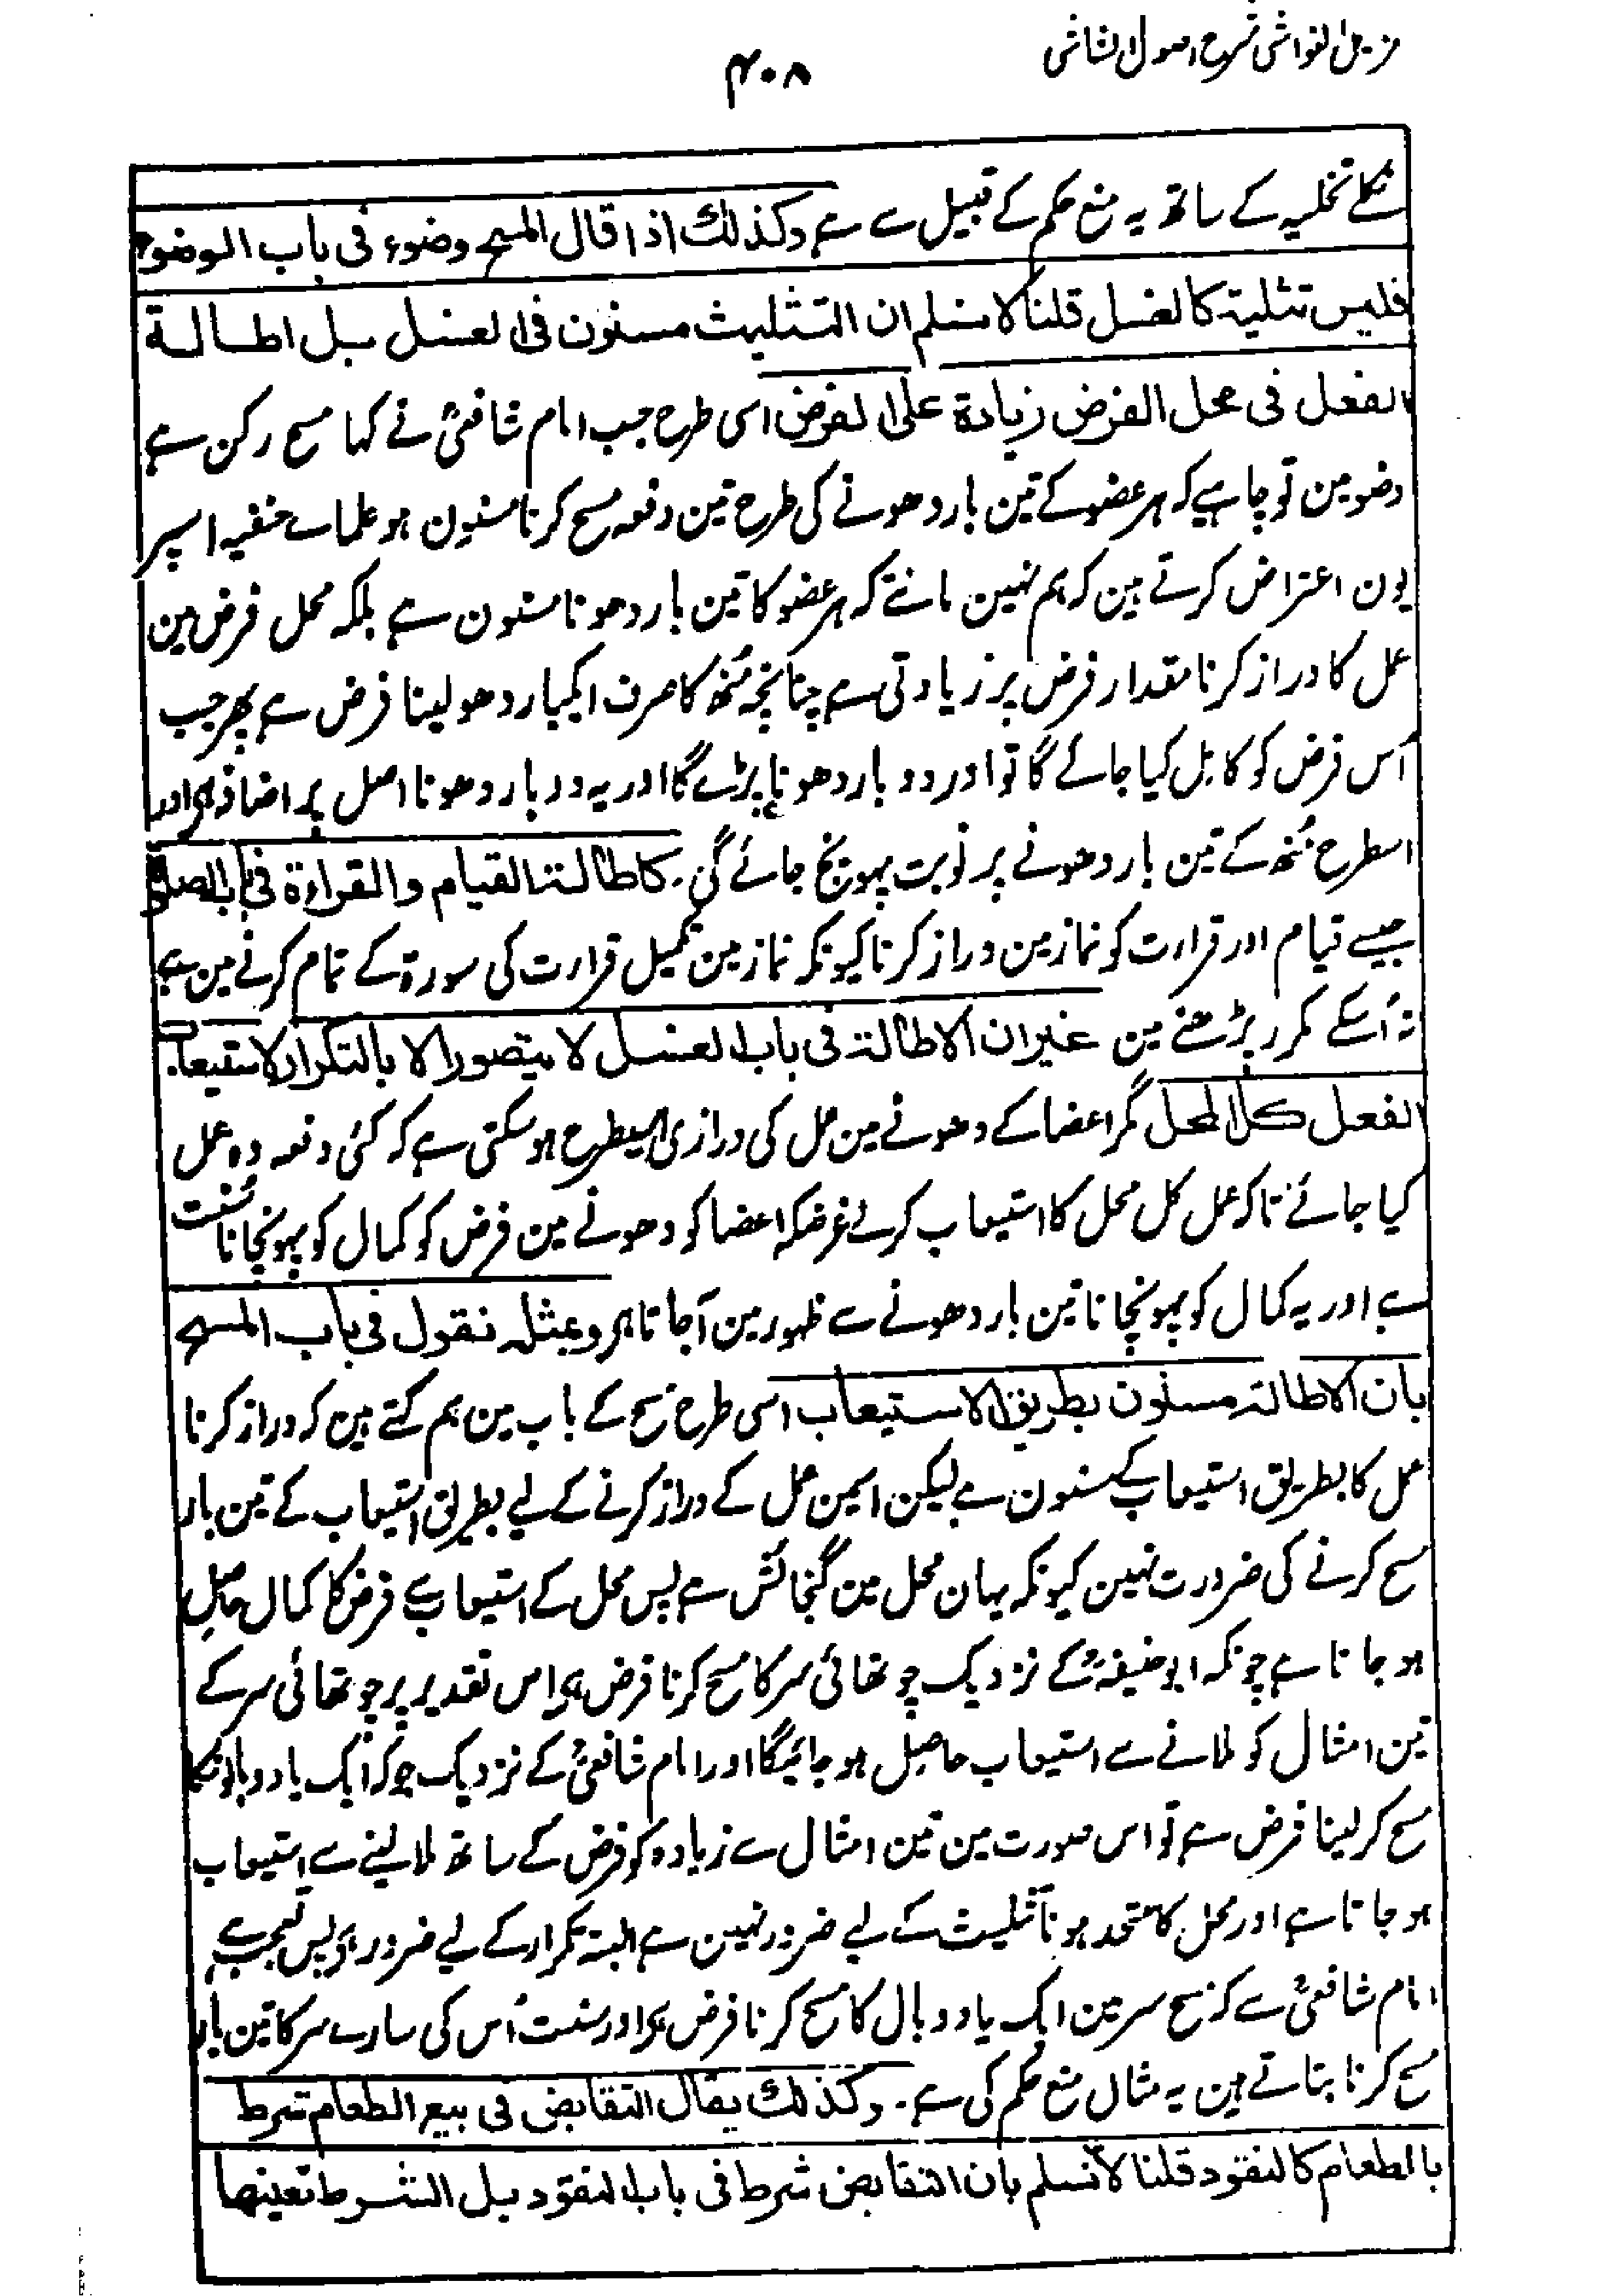 مزیل الغواشی شرح اصول الشاشی
۴۰۸
کے تخلیہ کے ساتھ یہ منع حکم کے قبیل سے ہے وکذلك اذا قال المسح وضوء فی باب الوضوء
فلیس تثلیثه کالغسل قلنا لا نسلم ان التثلیث مسنون فی الغسل بل اطالة
الفعل فی محل الفرض زیادة علی الفرض اسی طرح جب امام شافعیؒ نے کہا مسح رکن ہے
وضو مین تو چاہیے کہ ہر عضو کے تین بار دھونے کی طرح تین دفعہ مسح کرنا مسنون ہو علماے حنفیہ اسپر
یون اعتراض کرتے ہین کہ ہم نہین مانتے کہ ہر عضو کا تین بار دھونا مسنون ہے بلکہ محل فرض مین
عمل کا دراز کرنا مقدار فرض پر زیادتی ہے چنانچہ مُنھ کا صرف ایکبار دھولینا فرض ہے پھر جب
اُس فرض کو کامل کیا جائے گا تو اور دوبار دھونا پڑے گا اور یہ دو بار دھونا اصل پر اضافہ ہی اور
اسطرح مُنھ کے تین بار دھونے پر نوبت پہونچ جائے گی۔ کاطالة القیام والقراءة فی باب الصلوة
جیسے قیام اور قرارت کو نماز مین دراز کرنا کیونکہ نماز مین تکمیل قرارت کی سورۃ کے تمام کرنے مین ہے
نہ اُسکے مکرر پڑھنے مین غیر ان الاطالة فی باب الغسل لا یتصور الا بالتکرار لاستیعاب
الفعل کل المحل مگر اعضا کے دھونے مین عمل کی درازی اسیطرح ہوسکتی ہے کہ کئی دفعہ وہ عمل
کیا جائے تاکہ عمل کل محل کا استیعاب کرلے غرضکہ اعضا کو دھونے مین فرض کو کمال کو پہونچانا سُنّت
ہے اور یہ کمال کو پہونچانا تین بار دھونے سے ظہور مین آجاتا ہی وبمثله نقول فی باب المسح
بان الاطالة مسنون بطریق الاستیعاب اسی طرح مسح کے باب مین ہم کہتے ہین کہ دراز کرنا
عمل کا بطریق استیعاب کے مسنون ہے لیکن اسمین عمل کے دراز کرنے کے لیے بطریق استیعاب کے تین بار
مسح کرنے کی ضرورت نہین کیونکہ یہان محل مین گنجائش ہے پس محل کے استیعاب سے فرض کا کمال حاصل
ہو جاتا ہے چونکہ ابو حنیفہؒ کے نزدیک چوتھائی سر کا مسح کرنا فرض ہی اس تقدیر پر چوتھائی سر کے
تین امثال کو ملانے سے استیعاب حاصل ہو جائیگا اور امام شافعیؒ کے نزدیک جو کہ ایک یا دو بالونکا
مسح کر لینا فرض ہے تو اس صورت مین تین امثال سے زیادہ کو فرض کے ساتھ ملا لینے سے استیعاب
ہو جاتا ہے اور محل کا متحد ہونا تثلیث کے لیے ضرور نہین ہے البتہ تکرار کے لیے ضرور ہی پس تعجب ہے
امام شافعیؒ سے کہ مسح سر مین ایک یا دو بال کا مسح کرنا فرض ہی اور سنت اُس کی سارے سر کا تین بار
مسح کرنا بتاتے ہین یہ مثال منع حکم کی ہے۔ وکذلك یقال التقابض فی بیع الطعام شرط
بالطعام کالنقود قلنا لا نسلم بان التقابض شرط فی باب النقود بل الشرط تعینها